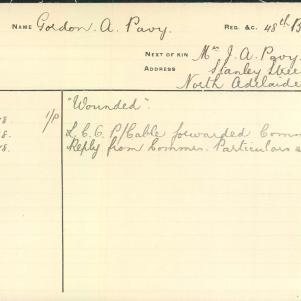 NAME Gordon. A. Pavy. REG. &C. 48th B
NEXT OF KIN Mrs J. A. Pavy.
ADDRESS Stanley Stree
North Adelaide
"Wounded".
8. 1/P L.C.G. P/Cable forwarded Comm
8. Reply from Commrs. Particulars a